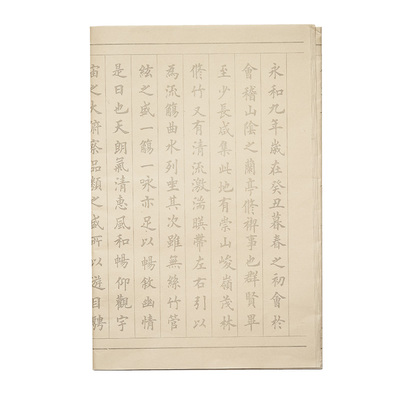 永和九年歲在癸丑暮春之初會於
會稽山陰之蘭亭脩禊事也群賢畢
至少長咸集此地有崇山峻嶺茂林
脩竹又有清流激湍暎帶左右引以
為流觴曲水列坐其次雖無絲竹管
絃之盛一觴一咏亦足以暢敘幽情
是日也天朗氣清惠風和暢仰觀宇
宙之大俯察品類之盛所以遊目騁